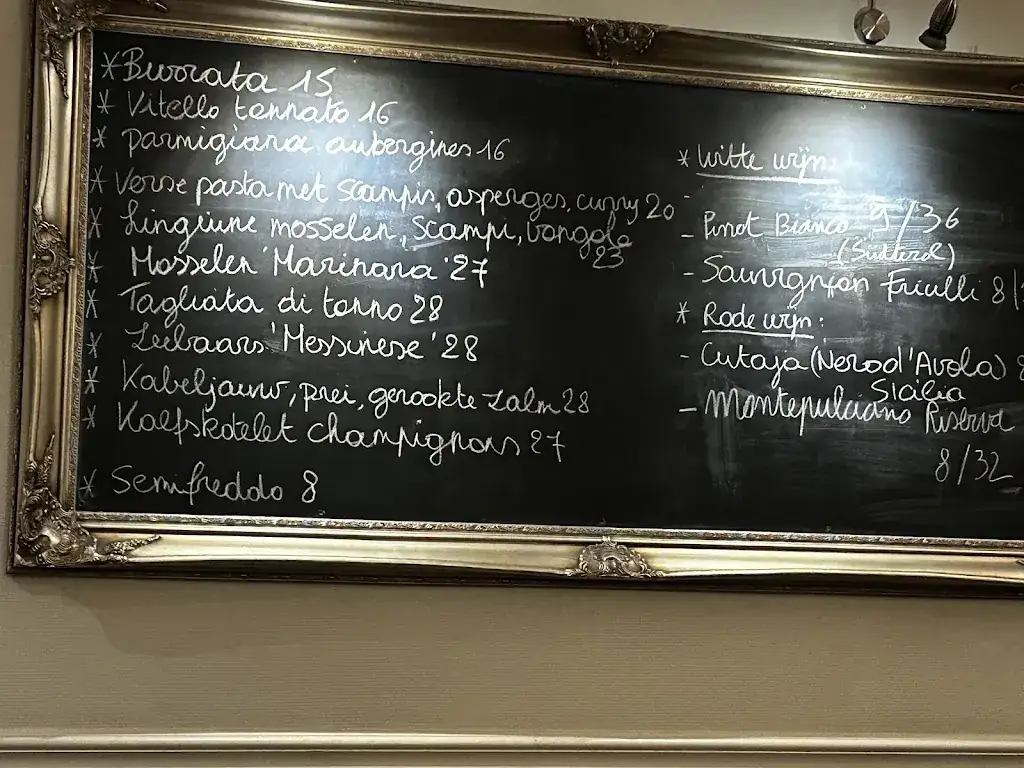 *Burrata 15
* Vitello tonnato 16
* parmigiana aubergines 16
* Verse pasta met scampis, asperges, curry 20
* Linguine mosselen, scampi, vongole
23
* Mosselen 'Marinara' 27
* Tagliata di tonno 28
* Zeebaars 'Messinese' 28
* Kabeljauw, prei, gerookte zalm 28
* Kalfskotelet champignons 27
* Semifreddo 8
* Witte wijn:
- Pinot Bianco 9/36
(Südtirol)
- Sauvignon Friulli 8/
* Rode wijn:
- Cutaja (Nero d'Avola) 8
Sicilia
- Montepulciano Riserva
8/32